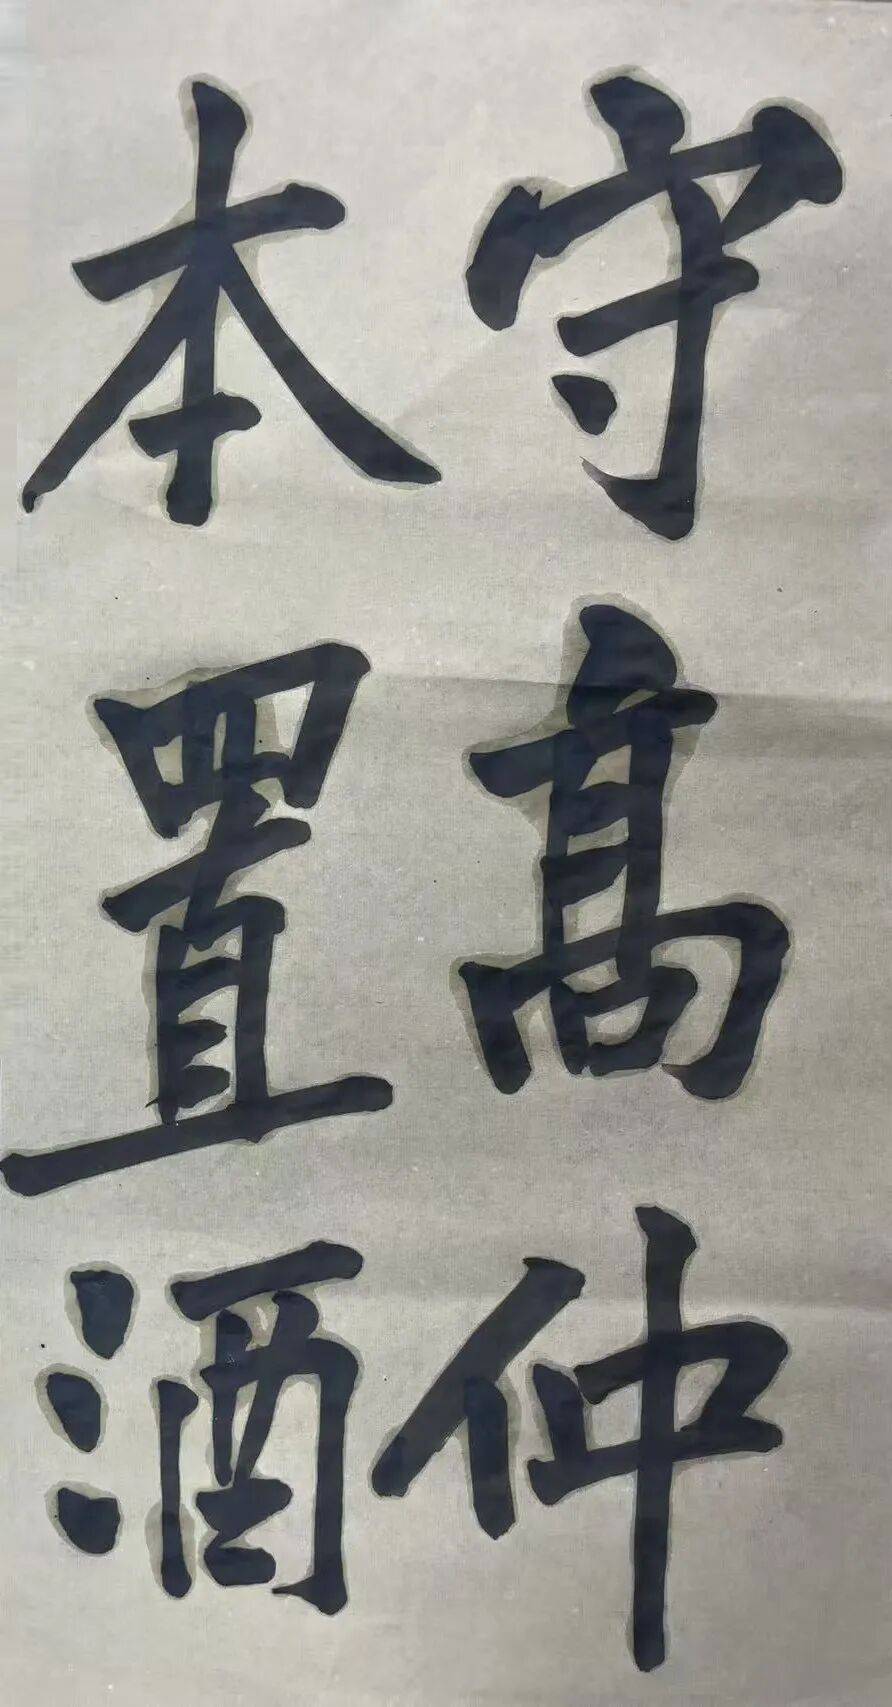 守髙仲
本置酒